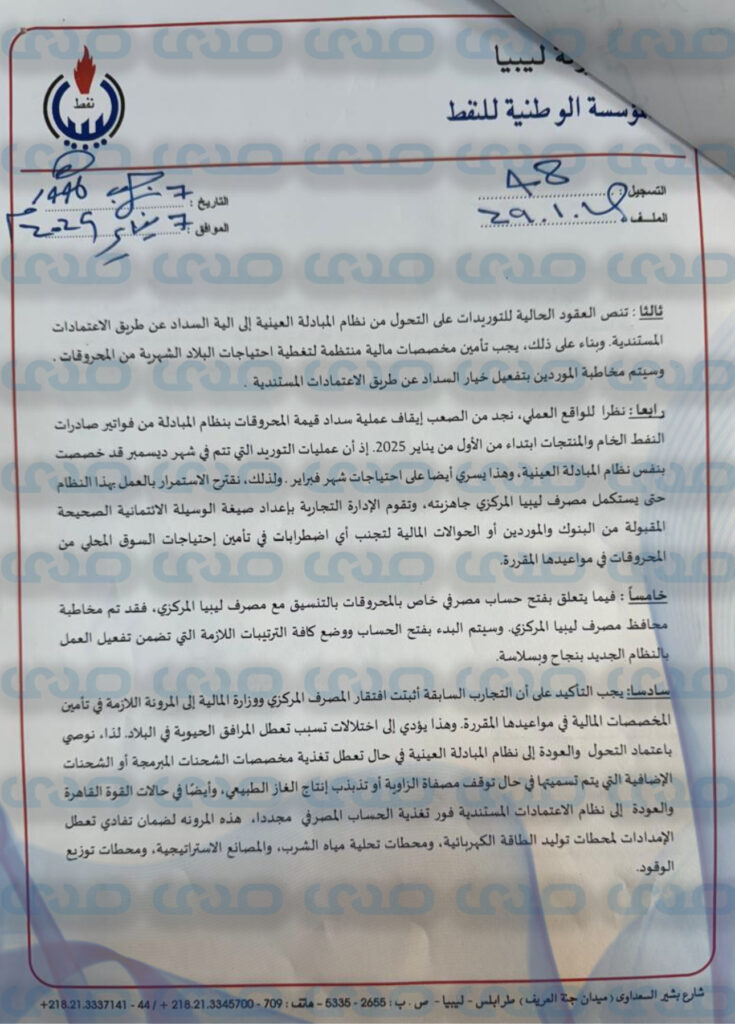 ليبيا
المؤسسة الوطنية للنفط
نفط
التسجيل : 48
الملف : 29.1.
التاريخ : 7 رجب 1446
الموافق : 7 يناير 2025
ثالثا : تنص العقود الحالية للتوريدات على التحول من نظام المبادلة العينية إلى الية السداد عن طريق الاعتمادات
المستندية. وبناء على ذلك، يجب تأمين مخصصات مالية منتظمة لتغطية احتياجات البلاد الشهرية من المحروقات .
وسيتم مخاطبة الموردين بتفعيل خيار السداد عن طريق الاعتمادات المستندية .
رابعا : نظرا للواقع العملي، نجد من الصعب إيقاف عملية سداد قيمة المحروقات بنظام المبادلة من فواتير صادرات
النفط الخام والمنتجات ابتداء من الأول من يناير 2025. إذ أن عمليات التوريد التي تتم في شهر ديسمبر قد خصصت
بنفس نظام المبادلة العينية، وهذا يسري أيضا على احتياجات شهر فبراير . ولذلك، نقترح الاستمرار بالعمل بهذا النظام
حتى يستكمل مصرف ليبيا المركزي جاهزيته، وتقوم الإدارة التجارية بإعداد صيغة الوسيلة الائتمانية الصحيحة
المقبولة من البنوك والموردين أو الحوالات المالية لتجنب أي اضطرابات في تأمين إحتياجات السوق المحلي من
المحروقات في مواعيدها المقررة.
خامساً : فيما يتعلق بفتح حساب مصرفي خاص بالمحروقات بالتنسيق مع مصرف ليبيا المركزي، فقد تم مخاطبة
محافظ مصرف ليبيا المركزي. وسيتم البدء بفتح الحساب ووضع كافة الترتيبات اللازمة التي تضمن تفعيل العمل
بالنظام الجديد بنجاح وبسلاسة.
سادسا: يجب التأكيد على أن التجارب السابقة أثبتت افتقار المصرف المركزي ووزارة المالية إلى المرونة اللازمة في تأمين
المخصصات المالية في مواعيدها المقررة. وهذا يؤدي إلى اختلالات تسبب تعطل المرافق الحيوية في البلاد. لذا، نوصي
باعتماد التحول والعودة إلى نظام المبادلة العينية في حال تعطل تغذية مخصصات الشحنات المبرمجة أو الشحنات
الإضافية التي يتم تسميتها في حال توقف مصفاة الزاوية أو تذبذب إنتاج الغاز الطبيعي، وأيضًا في حالات القوة القاهرة
والعودة إلى نظام الاعتمادات المستندية فور تغذية الحساب المصرفي مجددا، هذه المرونه لضمان تفادي تعطل
الإمدادات لمحطات توليد الطاقة الكهربائية، ومحطات تحلية مياه الشرب، والمصانع الاستراتيجية، ومحطات توزيع
الوقود.
شارع بشير السعداوي ( ميدان جنة العريف ) طرابلس - ليبيا - ص . ب : 2655 - 5335 - هاتف : 709 - 218.21.3345700 + / 44 - 218.21.3337141+
صدى